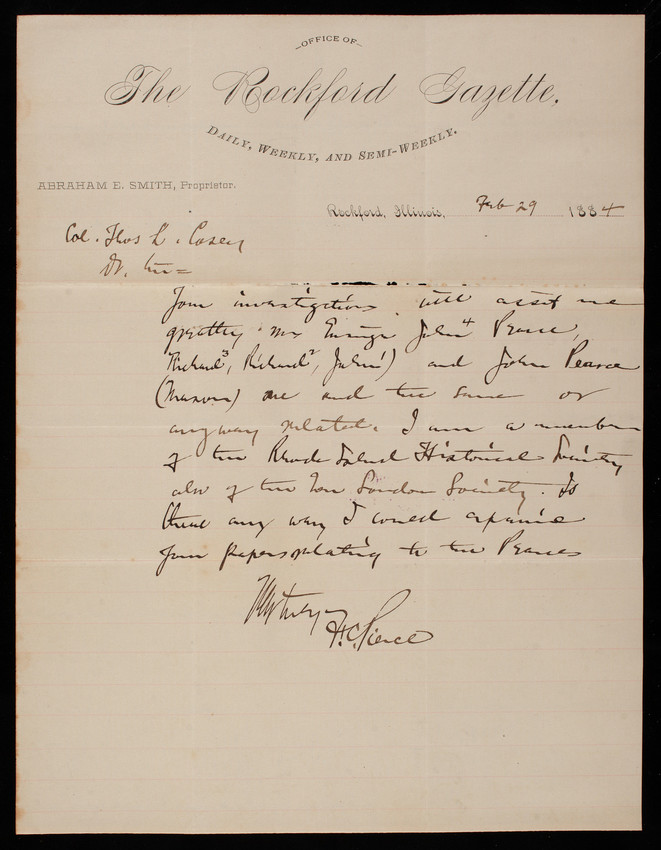 OFFICE OF
The Rockford Gazette,
DAILY, WEEKLY, AND SEMI-WEEKLY.
ABRAHAM E. SMITH, Proprietor.
Rockford, Illinois, Feb 29 1884
Col. Thos L. Casey
Dr. Sir=
Your investigations will assist me
greatly Ensign John⁴ Pearce,
Richard³, Richard², John¹) and John Pearce
(Mason) are and the same or
anyway related. I am a member
of the Rhode Island Historical Society
also of the New London Society. Is
there any way I could examine
your papers relating to the Pearces
H. C. Pierce